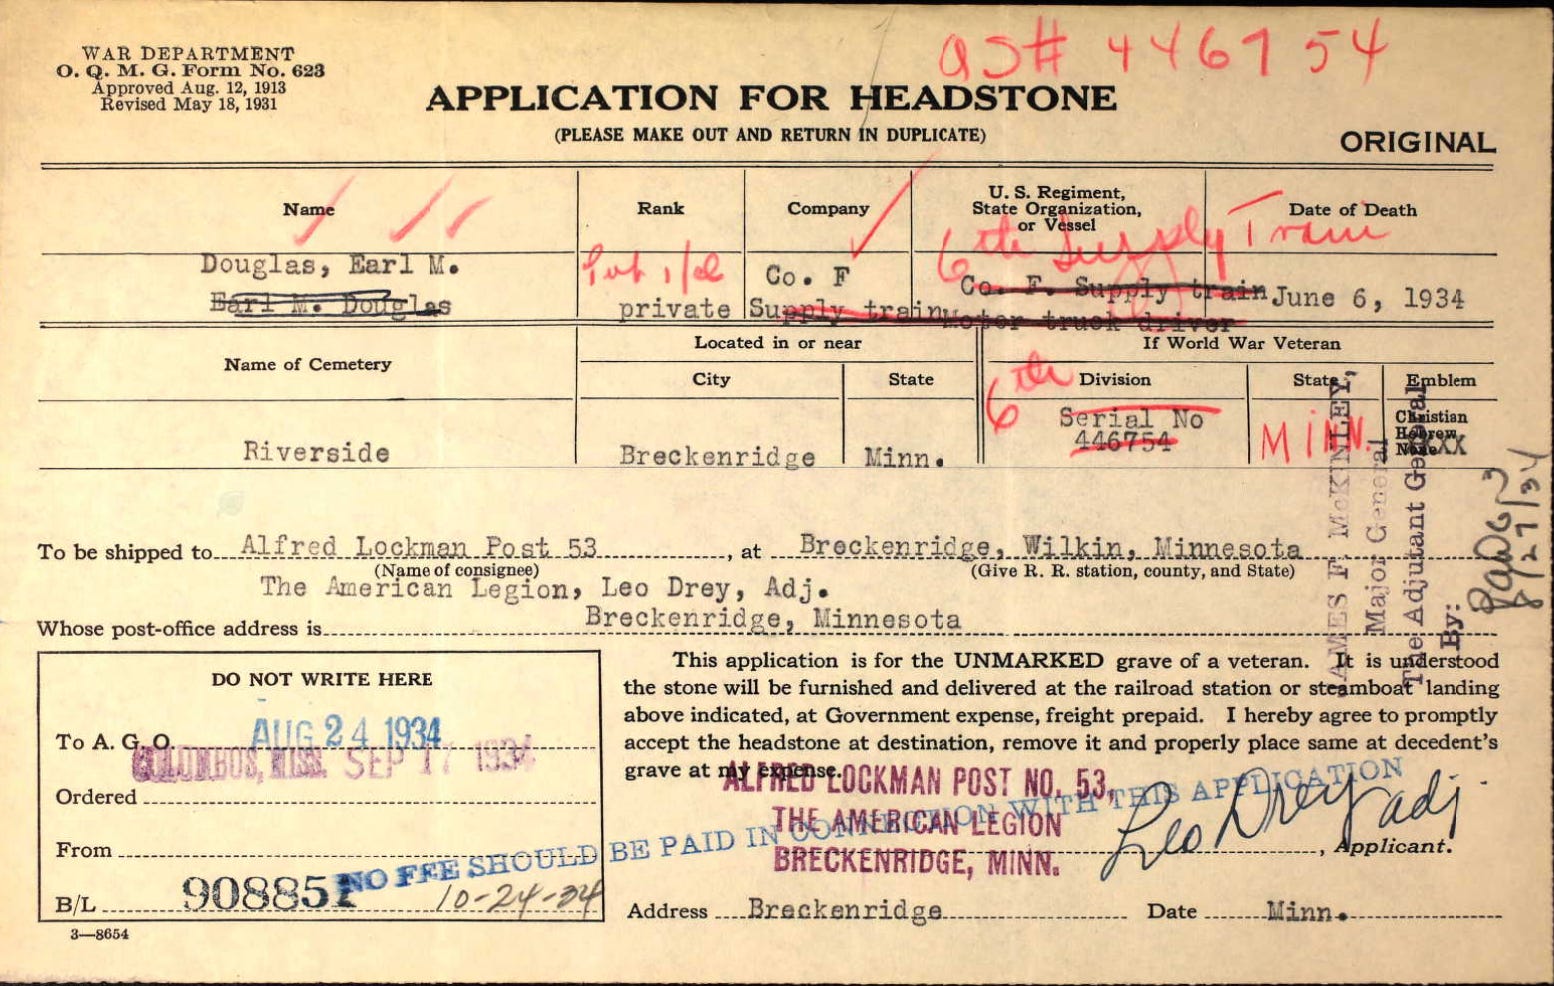 WAR DEPARTMENT
O. Q. M. G. Form No. 623
Approved Aug. 12, 1913
Revised May 18, 1931
AS# 446754
APPLICATION FOR HEADSTONE
(PLEASE MAKE OUT AND RETURN IN DUPLICATE)
ORIGINAL
Name Rank Company U. S. Regiment, State Organization, or Vessel Date of Death
6th Supply Train
Douglas, Earl M. Pvt 1/cl Co. F
Earl M. Douglas private Supply train Co. F. Supply train June 6, 1934
Motor truck driver
Name of Cemetery Located in or near If World War Veteran
City State Division State Emblem
6th Serial No MINN. Christian
446754 Hebrew
None XXX
Riverside Breckenridge Minn.
JAMES F. McKINLEY,
Major General
The Adjutant General
By:
8/27/34
To be shipped to Alfred Lockman Post 53, at Breckenridge, Wilkin, Minnesota
(Name of consignee) (Give R. R. station, county, and State)
The American Legion, Leo Drey, Adj.
Whose post-office address is Breckenridge, Minnesota
DO NOT WRITE HERE
To A. G. O. AUG 24 1934
COLUMBUS, MISS. SEP 17 1934
Ordered
From
B/L 908851 10-24-34
3—8654
This application is for the UNMARKED grave of a veteran. It is understood
the stone will be furnished and delivered at the railroad station or steamboat landing
above indicated, at Government expense, freight prepaid. I hereby agree to promptly
accept the headstone at destination, remove it and properly place same at decedent's
grave at my expense.
ALFRED LOCKMAN POST NO. 53,
THE AMERICAN LEGION
BRECKENRIDGE, MINN.
NO FEE SHOULD BE PAID IN CONNECTION WITH THIS APPLICATION
Leo Drey adj., Applicant.
Address Breckenridge Date Minn.